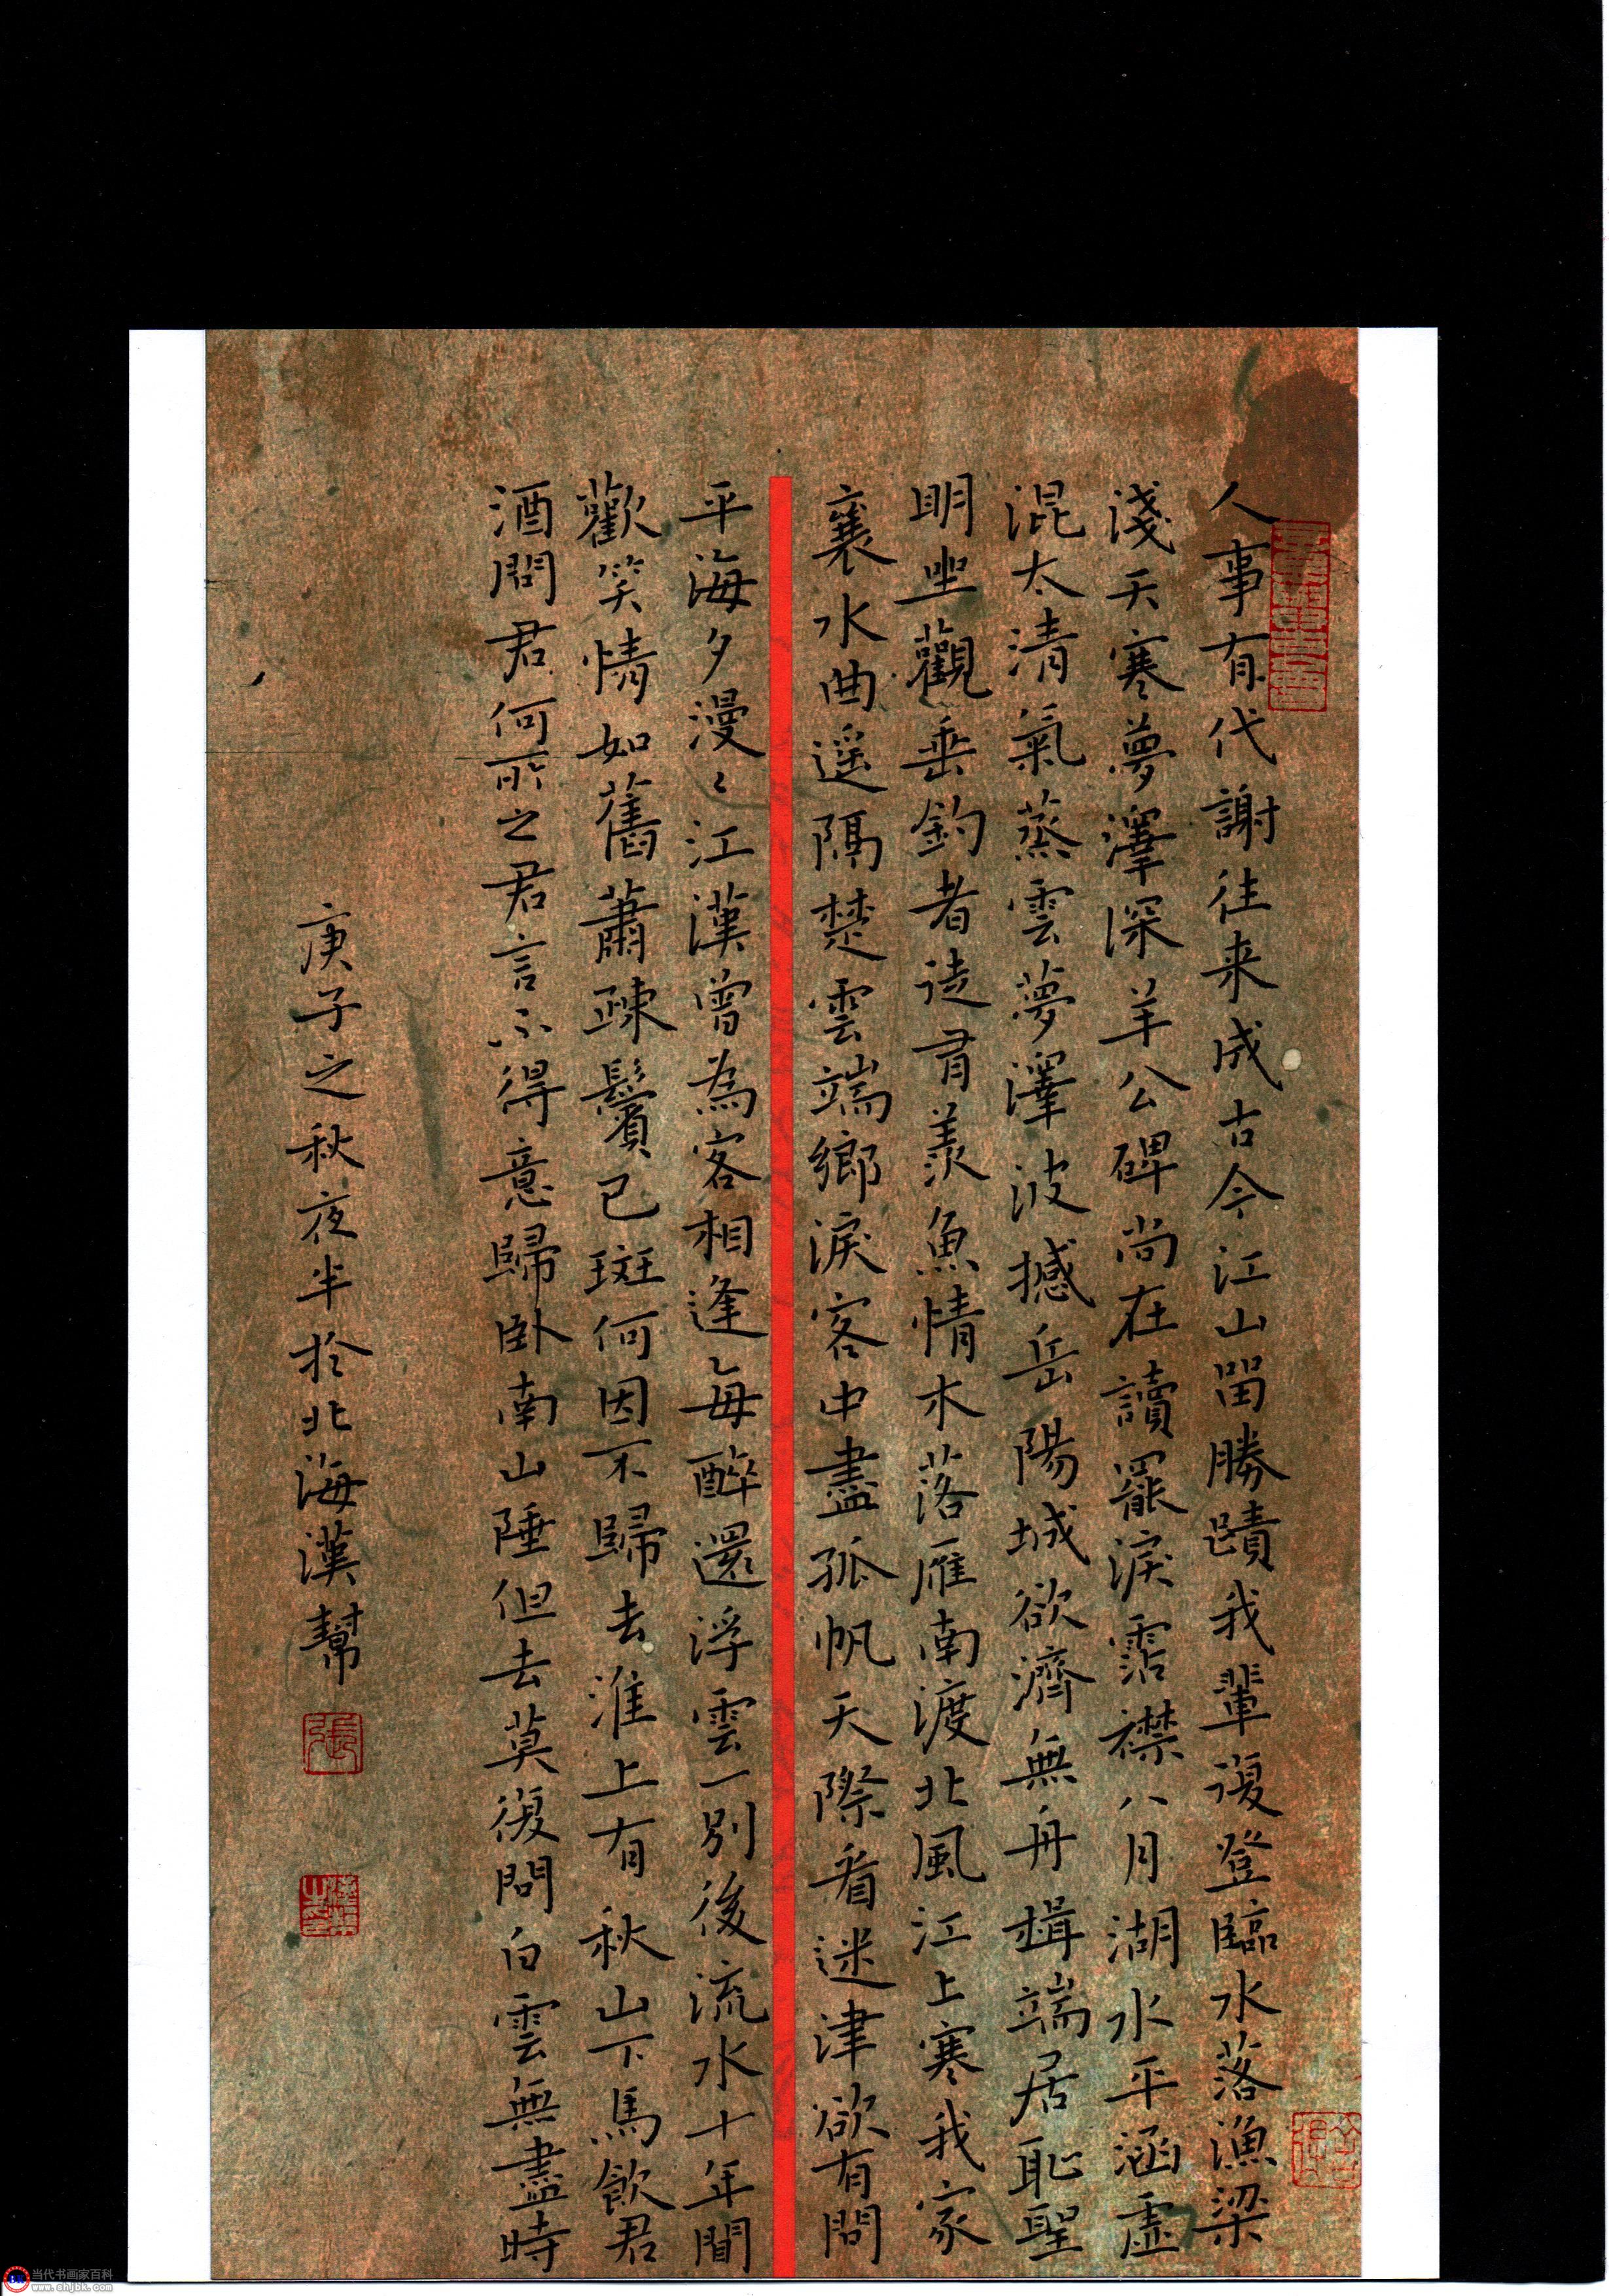 人事有代謝往来成古今江山畱勝蹟我輩復登臨水落漁梁
淺天寒夢澤深羊公碑尚在讀罷淚霑襟八月湖水平涵虛
混太清氣蒸雲夢澤波撼岳陽城欲濟無舟楫端居恥聖
明坐觀垂釣者徒有羨魚情木落雁南渡北風江上寒我家
襄水曲遥隔楚雲端鄉淚客中盡孤帆天際看迷津欲有問
平海夕漫〻江漢曾為客相逢每醉還浮雲一別後流水十年間
歡笑情如舊蕭疎鬢已斑何因不歸去淮上有秋山下馬飲君
酒問君何所之君言不得意歸卧南山陲但去莫復問白雲無盡時
庚子之秋夜半於北海漢幫
当代书画家百科
www.shjbk.com